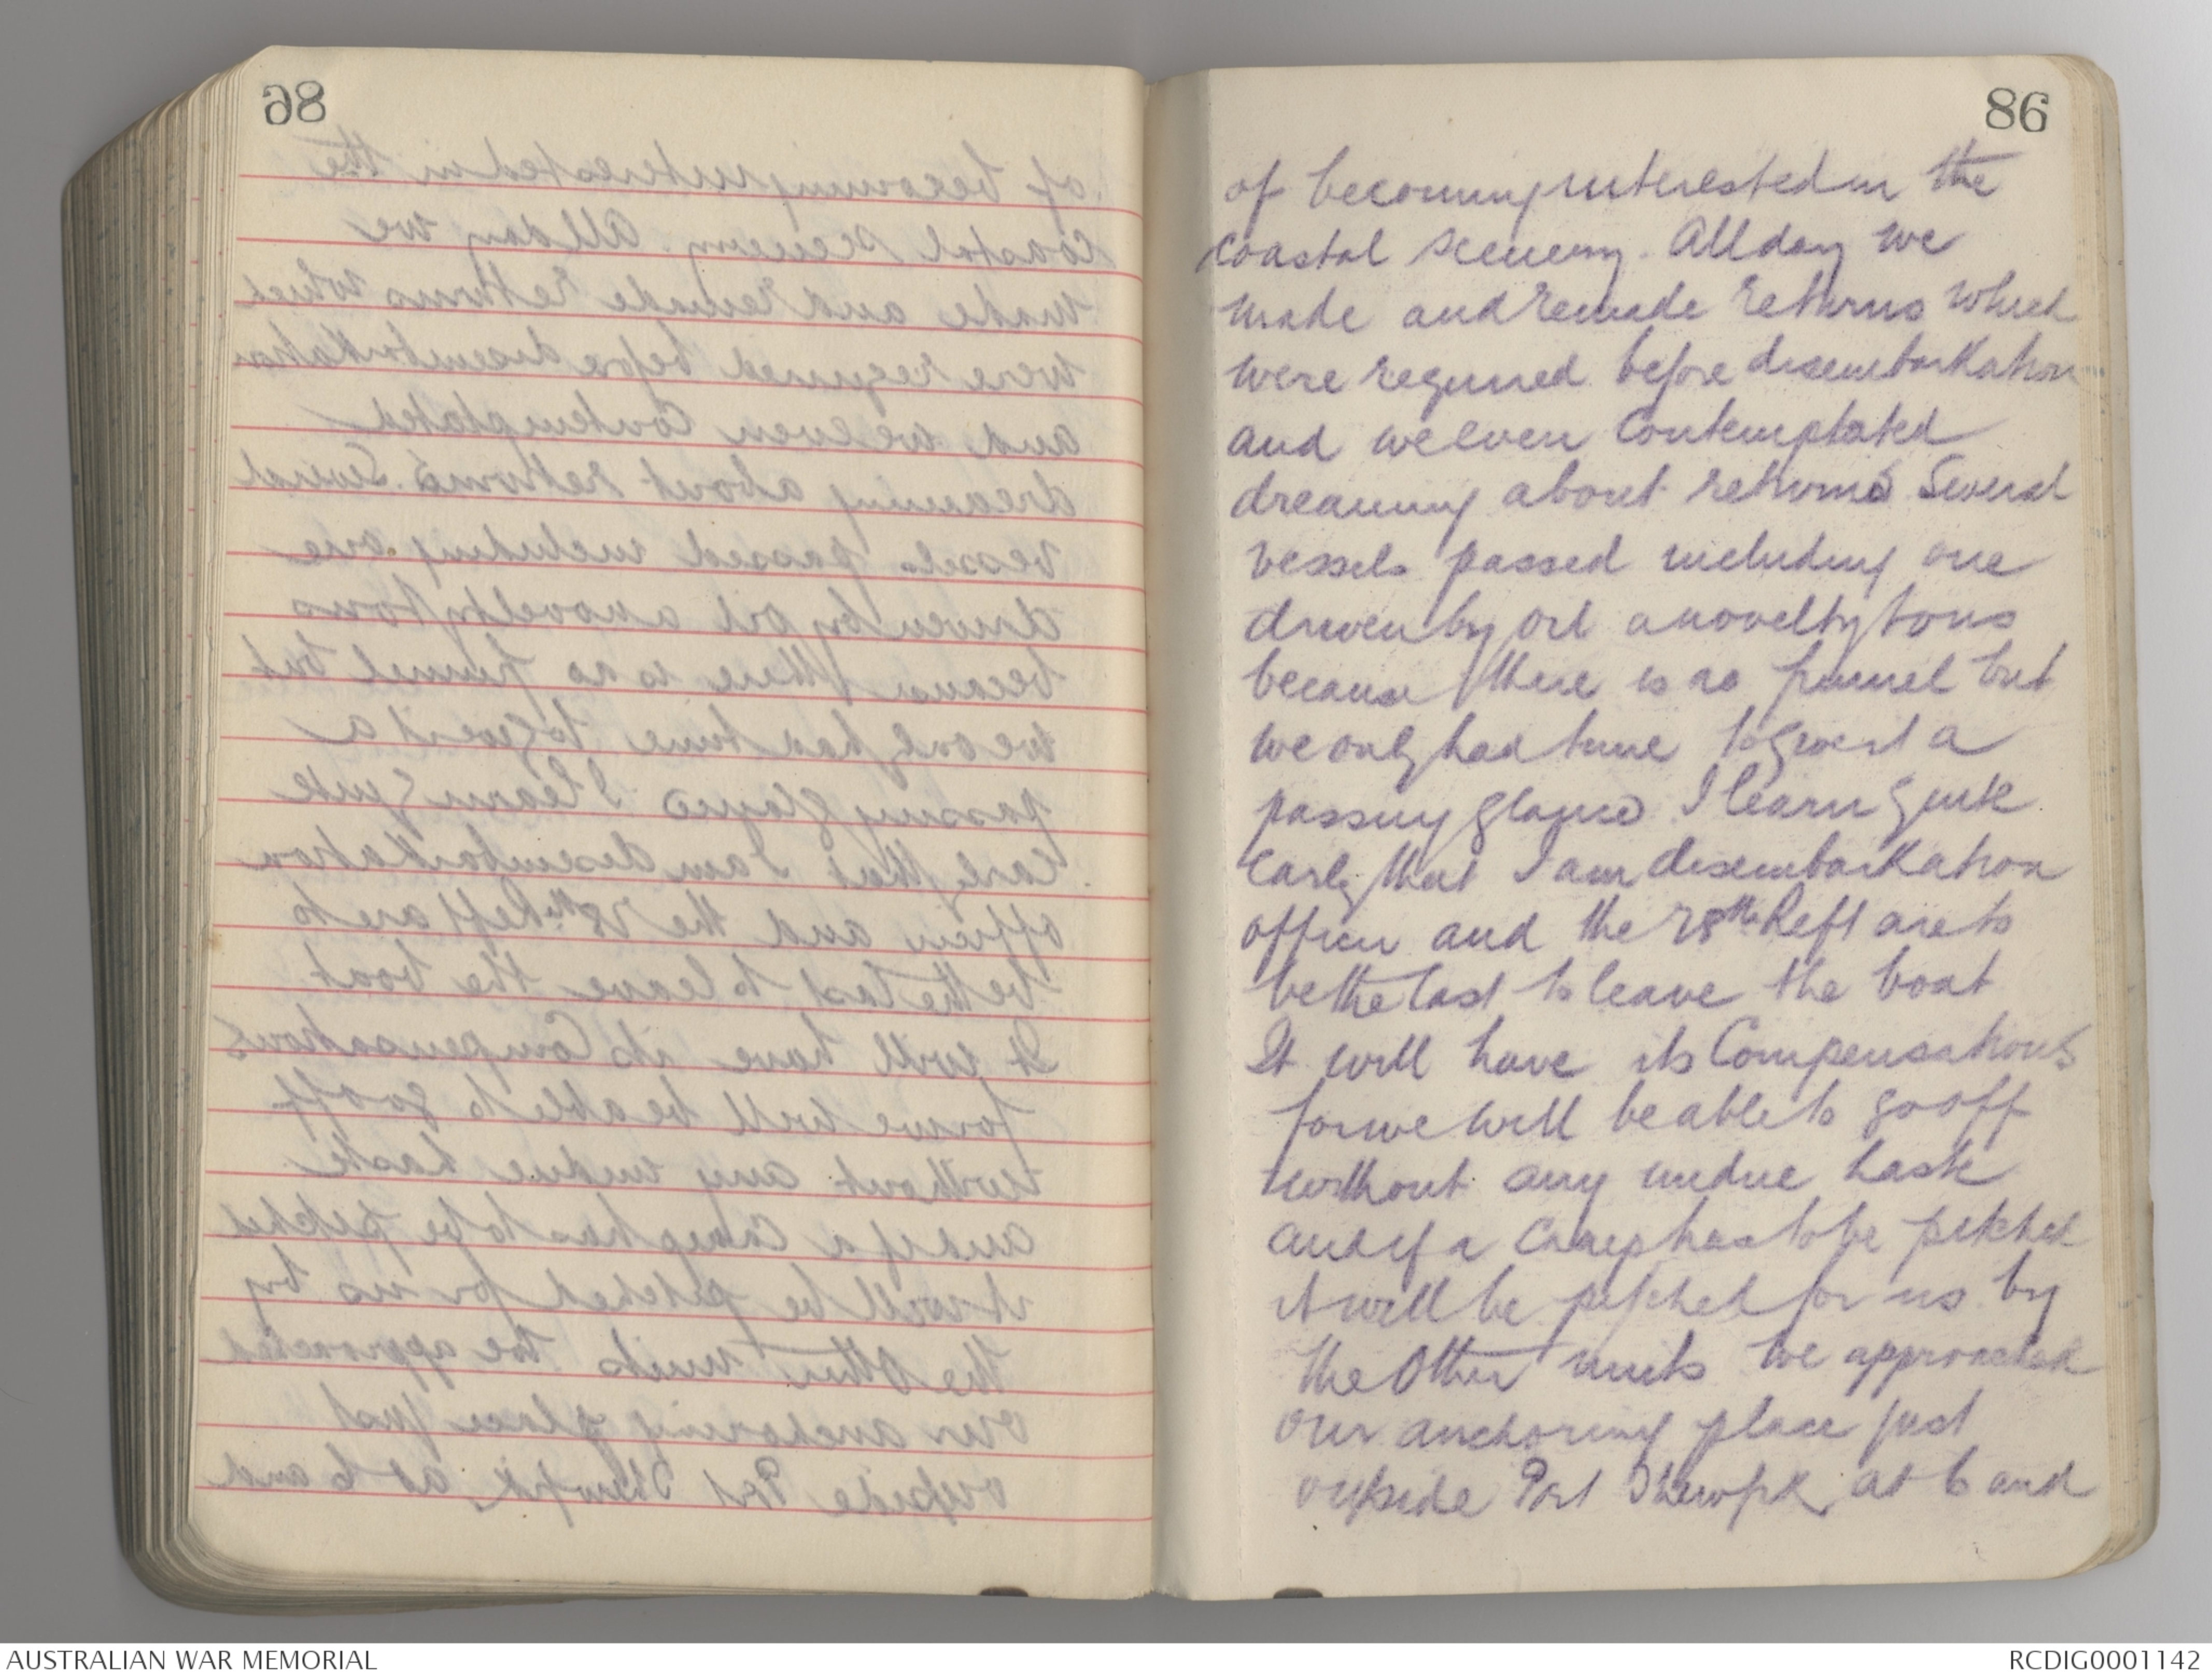 86
of becoming interested in the
coastal scenery. All day we
made and remade returns which
were required before disembarkation
and we even contemplated
dreaming about returns Several
vessels passed including one
driven by oil a novelty to us
because there is no funnel but
we only had time to give it a
passing glance I learn quite
early that I am disembarkation
officer and the 28th Reft are to
be the last to leave the boat
It will have its Compensations
for we will be able to go off
without any undue haste
and if a Camp has to be pitched
it will be pitched for us by
the other units We approached
our anchoring place just
outside Port Thewfik at 6 and
AUSTRALIAN WAR MEMORIAL
RCDIG0001142